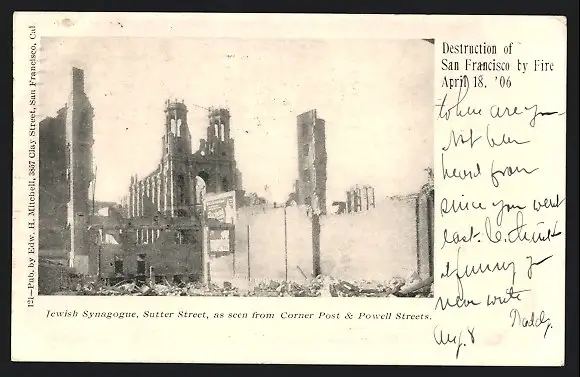 Destruction of
San Francisco by Fire
April 18, '06
where are you
Not been
heard from
since you went
east. C. think
funny
never write
Daddy.
Aug. 8
121—Pub. by Edw. H. Mitchell, 3857 Clay Street, San Francisco, Cal
Jewish Synagogue, Sutter Street, as seen from Corner Post & Powell Streets.